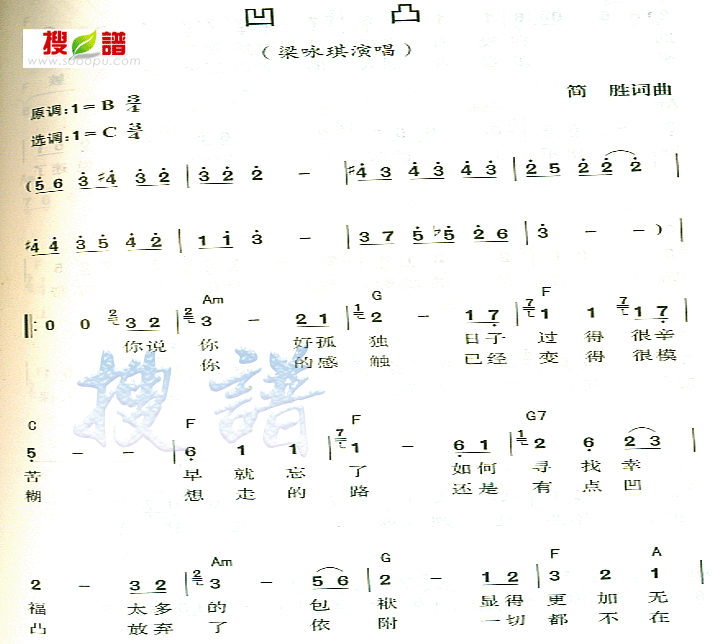 凹 凸
搜 譜
www.sooopu.com
(梁咏琪演唱)
简 胜词曲
原调:1=B 3/4
选调:1=C 3/4
(5 6 3 #4 3 2 | 3 2 2 - | #4 3 4 3 4 3 | 2 5 2 2 2 |
#4 4 3 5 4 2 | 1 1 3 - | 3 7 5 b5 2 6 | 3 - - ) |
Am G F
‖: 0 0 2 3 2 | 2 3 - 2 1 | 1 2 - 1 7 | 7 1 1 7 1 7 |
你说 你 好孤 独 日子 过 得 很辛
你 的感 触 已经 变 得 很模
C F F G7
5 - - | 6 1 1 | 7 1 - 6 1 | 1 2 6 2 3 |
苦 早 就 忘 了 如何 寻 找 幸
糊 想 走 的 路 还是 有 点 凹
Am G F A
2 - 3 2 | 2 3 - 5 6 | 2 - 1 2 | 3 2 1 |
福 太多 的 包 袱 显得 更 加 无
凸 放弃 了 依 附 一切 都 不 在
搜譜